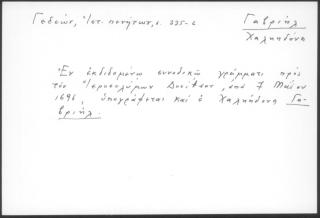 Γεδεών, Ἱστ. πενήτων, σ. 335-6
Γαβριὴλ
Χαλκηδόνη
Ἐν ἐκδιδομένῳ συνοδικῷ γράμματι πρὸς
τὸν Ἱεροσολύμων Δοσίθεον, ἀπὸ 7 Μαΐου
1696, ὑπογράφεται καὶ ὁ Χαλκηδόνη Γα-
βριήλ.